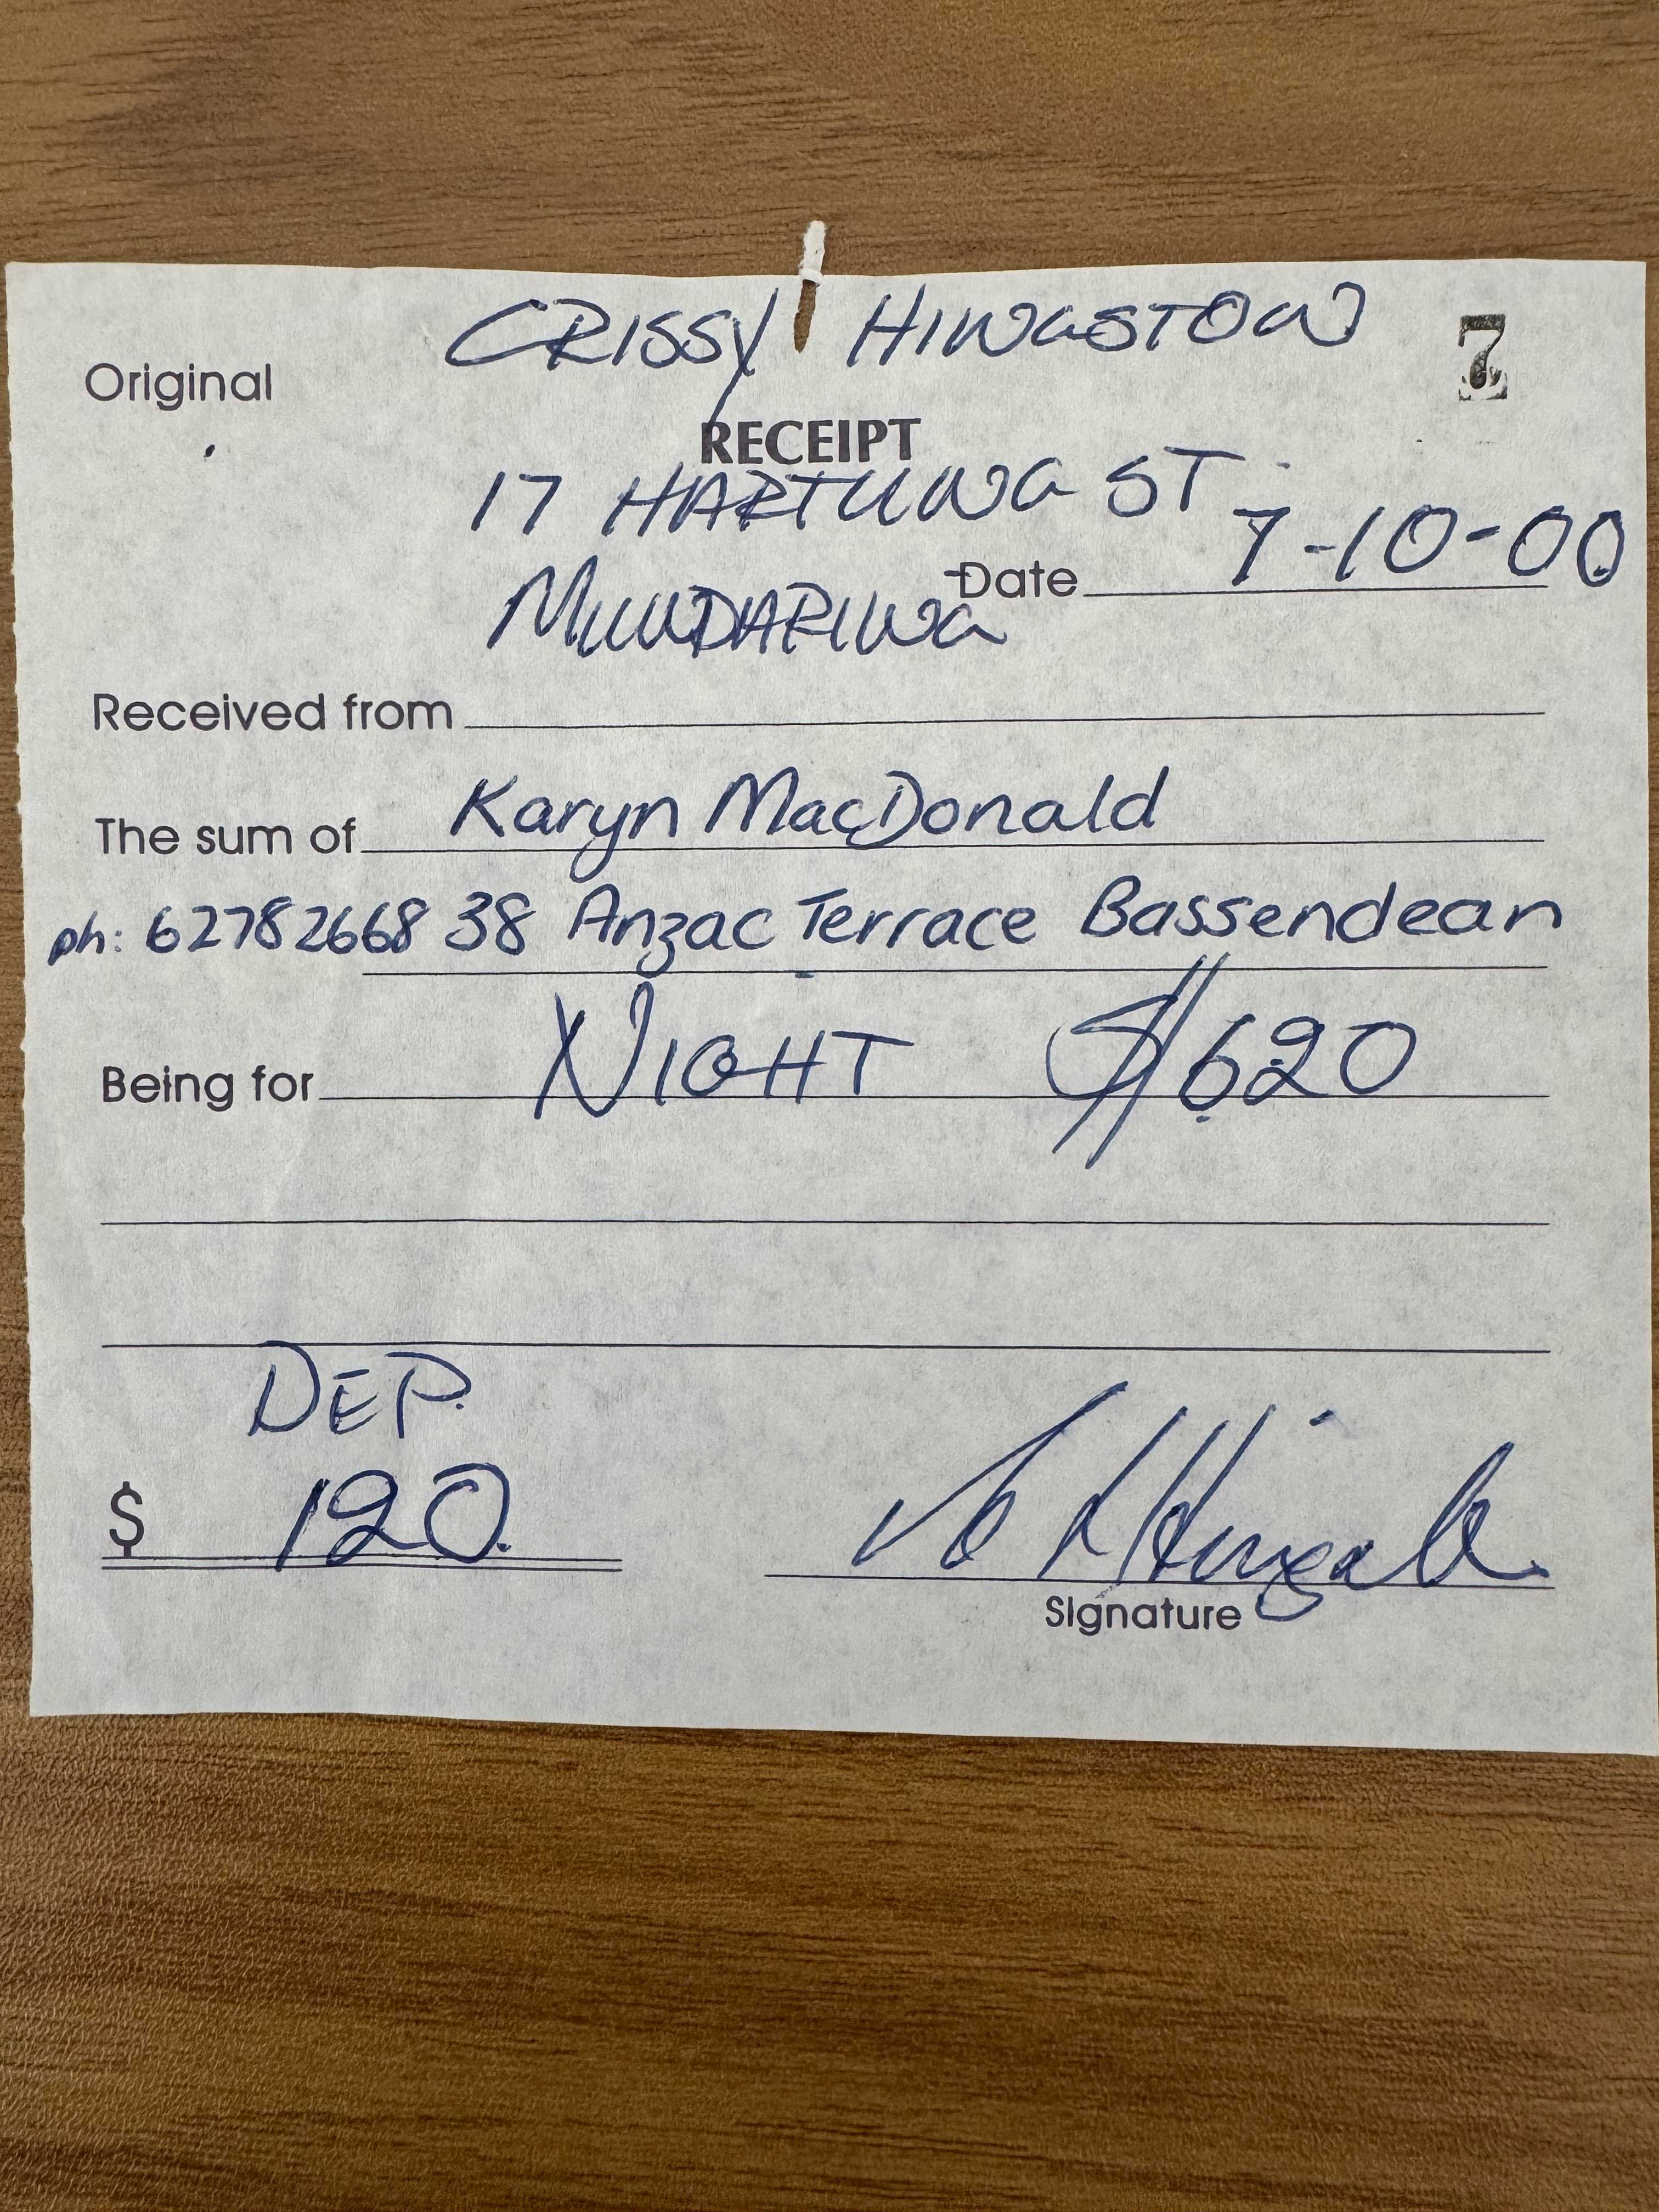 CRISSY HINGSTON
Original
7
RECEIPT
17 HARTUNG ST
Date 7-10-00
MUNDARING
Received from
The sum of Karyn MacDonald
ph: 62782668 38 Anzac Terrace Bassendean
Being for NIGHT $620
DEP.
$ 120.
Signature